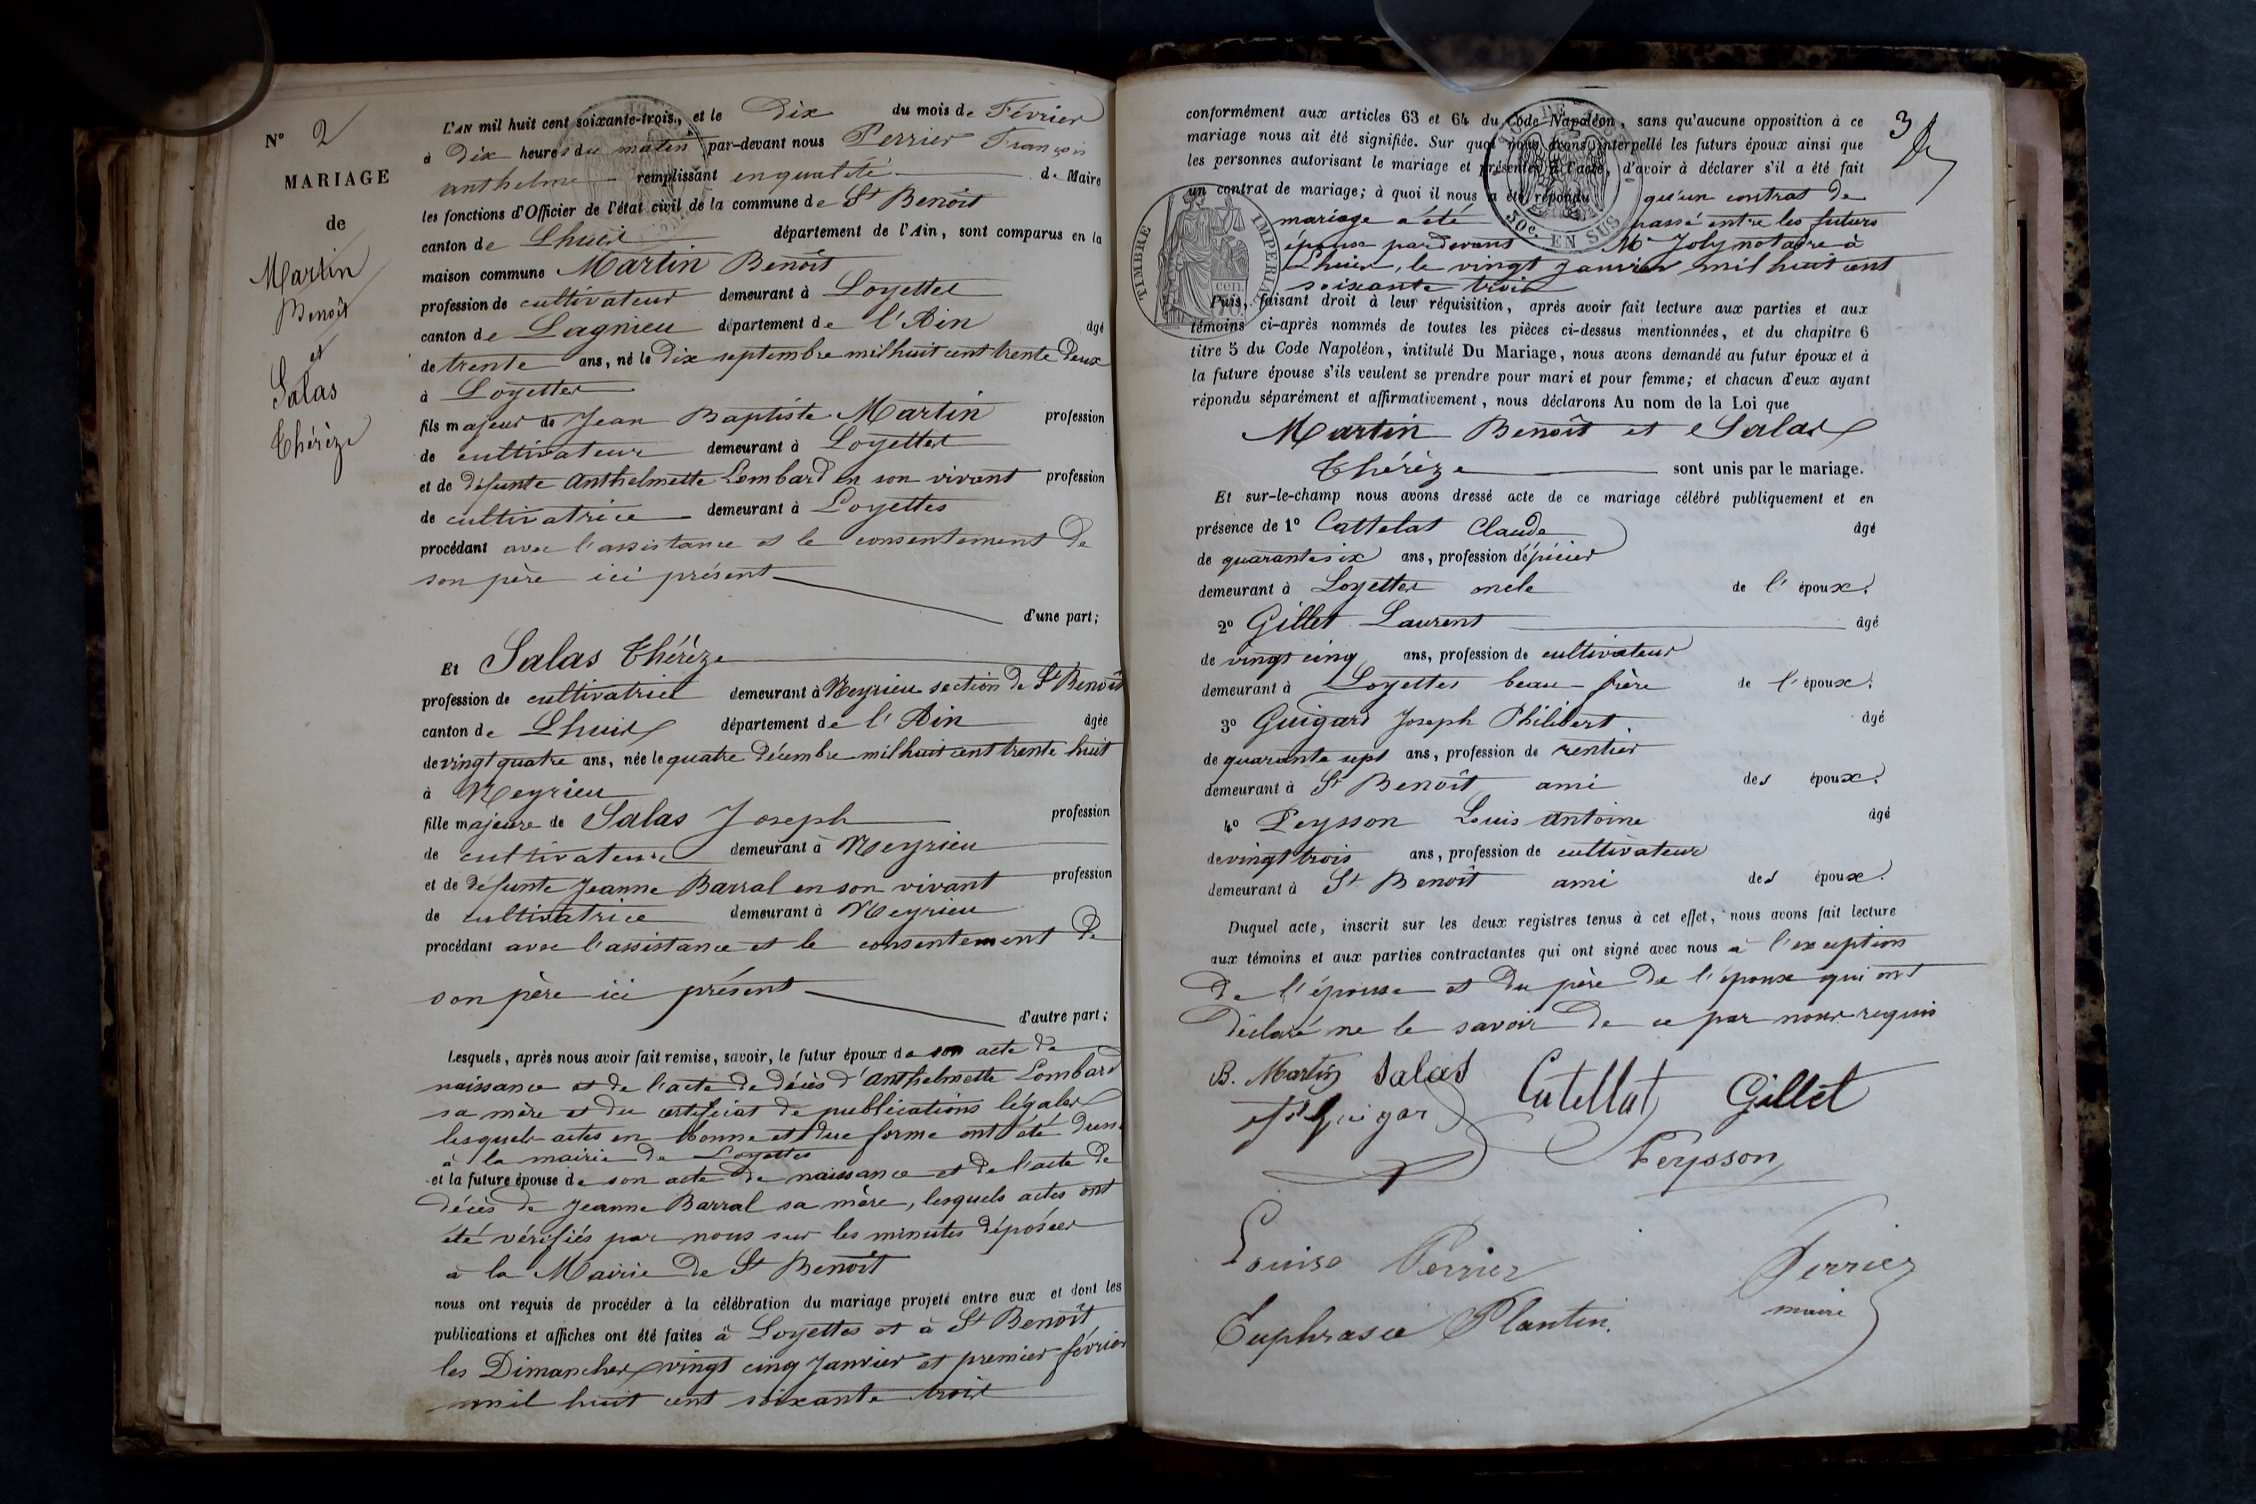 N° 2
MARIAGE
de
Martin
Benoît
et
Salas
Thérèze
L'AN mil huit cent soixante-trois, et le Dix du mois de Février
à Dix heures du matin par-devant nous Perrier François
anthelme remplissant en qualité de Maire
les fonctions d'Officier de l'état civil de la commune de St Benoît
canton de Lhuis département de l'Ain, sont comparus en la
maison commune Martin Benoît
profession de cultivateur demeurant à Loyettes
canton de Lagnieu département de l'Ain âgé
de trente ans, né le Dix septembre mil huit cent trente Deux
à Loyettes
fils majeur de Jean Baptiste Martin profession
de cultivateur demeurant à Loyettes
et de défunte Anthelmette Lombard en son vivant profession
de cultivatrice demeurant à Loyettes
procédant avec l'assistance et le consentement De
son père ici présent
d'une part;
Et Salas Thérèze
profession de cultivatrice demeurant à Neyrieu section de St Benoît
canton de Lhuis département de l'Ain âgée
de vingt quatre ans, née le quatre Décembre mil huit cent trente huit
à Neyrieu
fille majeure de Salas Joseph profession
de cultivateur demeurant à Neyrieu
et de défunte Jeanne Barral en son vivant profession
de cultivatrice demeurant à Neyrieu
procédant avec l'assistance et le consentement De
son père ici présent
d'autre part;
Lesquels, après nous avoir fait remise, savoir, le futur époux de son acte de
naissance et de l'acte de décès d'Anthelmette Lombard
sa mère et du certificat de publications légales
lesquels actes en bonne et due forme ont été
à la mairie de Loyettes
et la future épouse de son acte de naissance et de l'acte de
décès de Jeanne Barral sa mère, lesquels actes ont
été vérifiés par nous sur les minutes déposées
à la Mairie de St Benoît
nous ont requis de procéder à la célébration du mariage projeté entre eux et dont les
publications et affiches ont été faites à Loyettes et à St Benoît
les Dimanches vingt cinq Janvier et premier février
mil huit cent soixante trois
3
conformément aux articles 63 et 64 du Code Napoléon, sans qu'aucune opposition à ce
mariage nous ait été signifiée. Sur quoi nous avons interpellé les futurs époux ainsi que
les personnes autorisant le mariage et présentes à l'acte, d'avoir à déclarer s'il a été fait
un contrat de mariage; à quoi il nous a été répondu qu'un contrat de
mariage a été passé entre les futurs
époux pardevant Me Joly notaire à
Lhuis, le vingt Janvier mil huit cent
soixante trois
TIMBRE IMPÉRIAL
50c. EN SUS
Puis, faisant droit à leur réquisition, après avoir fait lecture aux parties et aux
témoins ci-après nommés de toutes les pièces ci-dessus mentionnées, et du chapitre 6
titre 5 du Code Napoléon, intitulé Du Mariage, nous avons demandé au futur époux et à
la future épouse s'ils veulent se prendre pour mari et pour femme; et chacun d'eux ayant
répondu séparément et affirmativement, nous déclarons Au nom de la Loi que
Martin Benoît et Salas
Thérèze sont unis par le mariage.
Et sur-le-champ nous avons dressé acte de ce mariage célébré publiquement et en
présence de 1° Cattelat Claude âgé
de quarante six ans, profession d'épicier
demeurant à Loyettes oncle de l'époux.
2° Gillet Laurent âgé
de vingt cinq ans, profession de cultivateur
demeurant à Loyettes beau-frère de l'époux.
3° Guigard Joseph Philibert âgé
de quarante sept ans, profession de rentier
demeurant à St Benoît ami des époux.
4° Peysson Louis Antoine âgé
de vingt trois ans, profession de cultivateur
demeurant à St Benoît ami des époux.
Duquel acte, inscrit sur les deux registres tenus à cet effet, nous avons fait lecture
aux témoins et aux parties contractantes qui ont signé avec nous à l'exception
De l'épouse et Du père De l'époux qui ont
Déclaré ne le savoir De ce par nous requis
B. Martin Salas Catellat Gillet
Peysson
Louise Perrier Perrier
maire
Euphrasie Plantin.